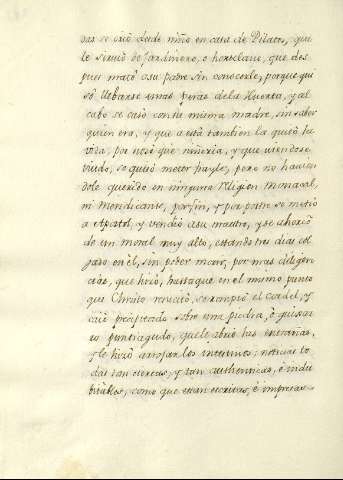 das se crió desde niño en casa de Pilatos, que
le sirvió de Jardinero, o hortelano, que des
pues mató a su padre sin conocerle, porque qui
so llebarse unas peras de la Huerta, y al
cabo se casó con su misma madre, sin saber
quien era, y que a esta tambien la quitó la
vida, por no sé que niñeria, y que viendose
viudo, se quiso meter frayle, pero no havien
dole querido en ninguna Religion monacal,
ni Mendicante, por fin, y por postre se metió
a Apostol, y vendió a su maestro, y se ahorcó
de un moral muy alto, estando tres dias col
gado en él, sin poder morir, por mas diligen
cias, que hizo, hasta que en el mismo punto
que Christo resucitó, se rompió el cordel, y
cayó precipitado sobre una piedra, o guisar
ro puntiagudo, que le abrió las entrañas,
y le hizo arrojar los intestinos; noticias to
das tan ciertas, y tan authenticas, e indu
bitables, como que estan escritas, e impresas